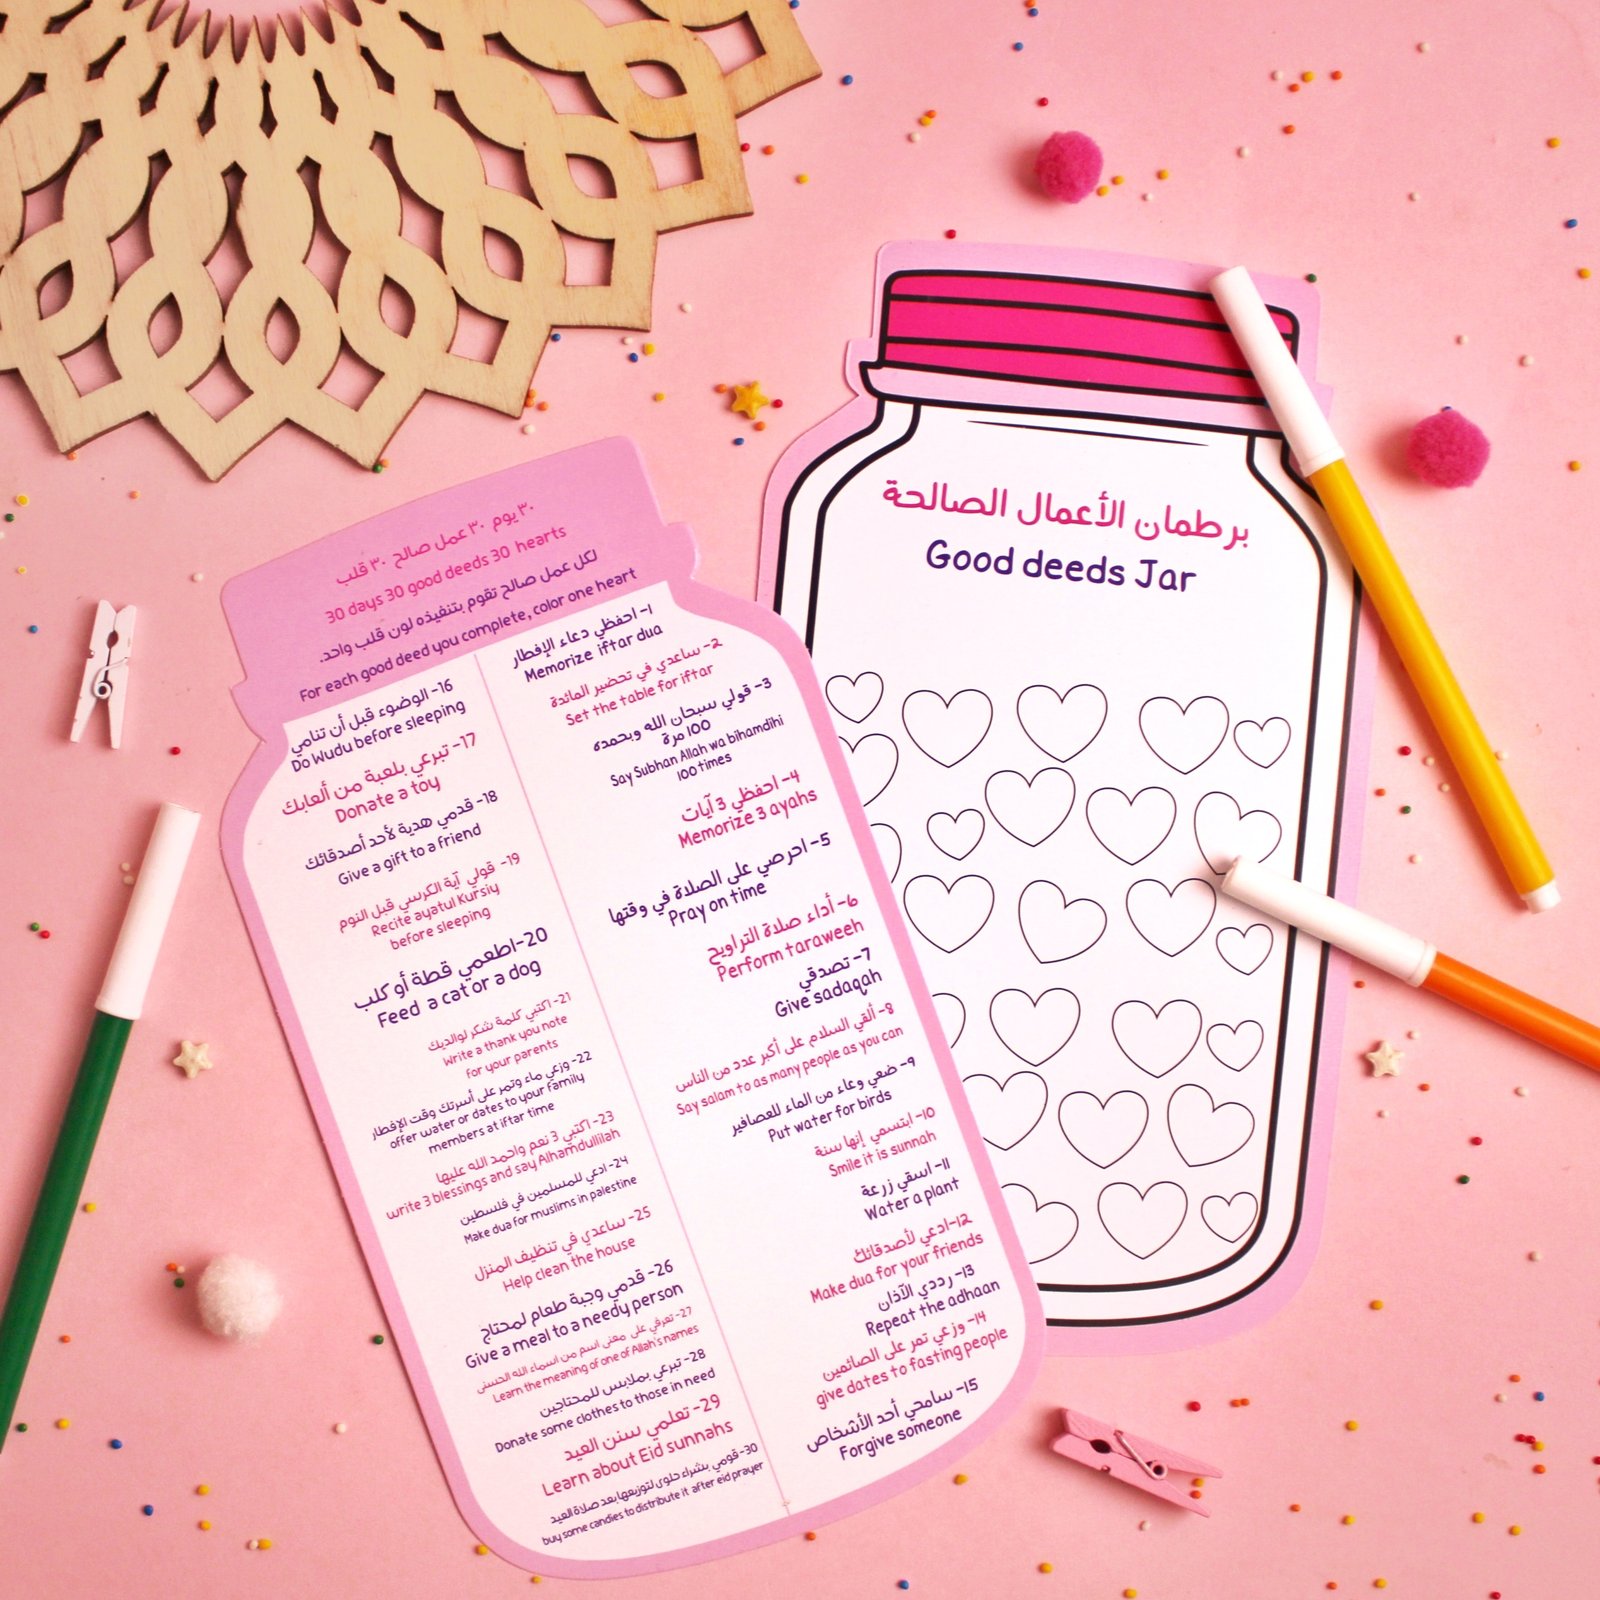 برطمان الأعمال الصالحة
Good deeds Jar
٣٠ يوم ٣٠ عمل صالح ٣٠ قلب
30 days 30 good deeds 30 hearts
لكل عمل صالح تقوم بتنفيذه لون قلب واحد.
For each good deed you complete, color one heart
1- احفظي دعاء الإفطار
Memorize iftar dua
2- ساعدي في تحضير المائدة
Set the table for iftar
3- قولي سبحان الله وبحمده
100 مرة
Say Subhan Allah wa bihamdihi
100 times
4- احفظي 3 آيات
Memorize 3 ayahs
5- احرصي على الصلاة في وقتها
Pray on time
6- أداء صلاة التراويح
Perform taraweeh
7- تصدقي
Give sadaqah
8- ألقي السلام على أكبر عدد من الناس
Say salam to as many people as you can
9- ضعي وعاء من الماء للعصافير
Put water for birds
10- ابتسمي إنها سنة
Smile it is sunnah
11- اسقي زرعة
Water a plant
12-ادعي لأصدقائك
Make dua for your friends
13- رددي الآذان
Repeat the adhaan
14- وزعي تمر على الصائمين
give dates to fasting people
15- سامحي أحد الأشخاص
Forgive someone
16- الوضوء قبل أن تنامي
Do Wudu before sleeping
17- تبرعي بلعبة من ألعابك
Donate a toy
18- قدمي هدية لأحد أصدقائك
Give a gift to a friend
19- قولي آية الكرسي قبل النوم
Recite ayatul Kursiy
before sleeping
20-اطعمي قطة أو كلب
Feed a cat or a dog
21- اكتبي كلمة شكر لوالديك
Write a thank you note
for your parents
22- وزعي ماء وتمر على أسرتك وقت الإفطار
offer water or dates to your family
members at iftar time
23- اكتبي 3 نعم واحمد الله عليها
write 3 blessings and say Alhamdullilah
24- ادعي للمسلمين في فلسطين
Make dua for muslims in palestine
25- ساعدي في تنظيف المنزل
Help clean the house
26- قدمي وجبة طعام لمحتاج
Give a meal to a needy person
27- تعرفي على معنى اسم من اسماء الله الحسنى
Learn the meaning of one of Allah's names
28- تبرعي بملابس للمحتاجين
Donate some clothes to those in need
29- تعلمي سنن العيد
Learn about Eid sunnahs
30- قومي بشراء حلوى لتوزيعها بعد صلاة العيد
buy some candies to distribute it after eid prayer